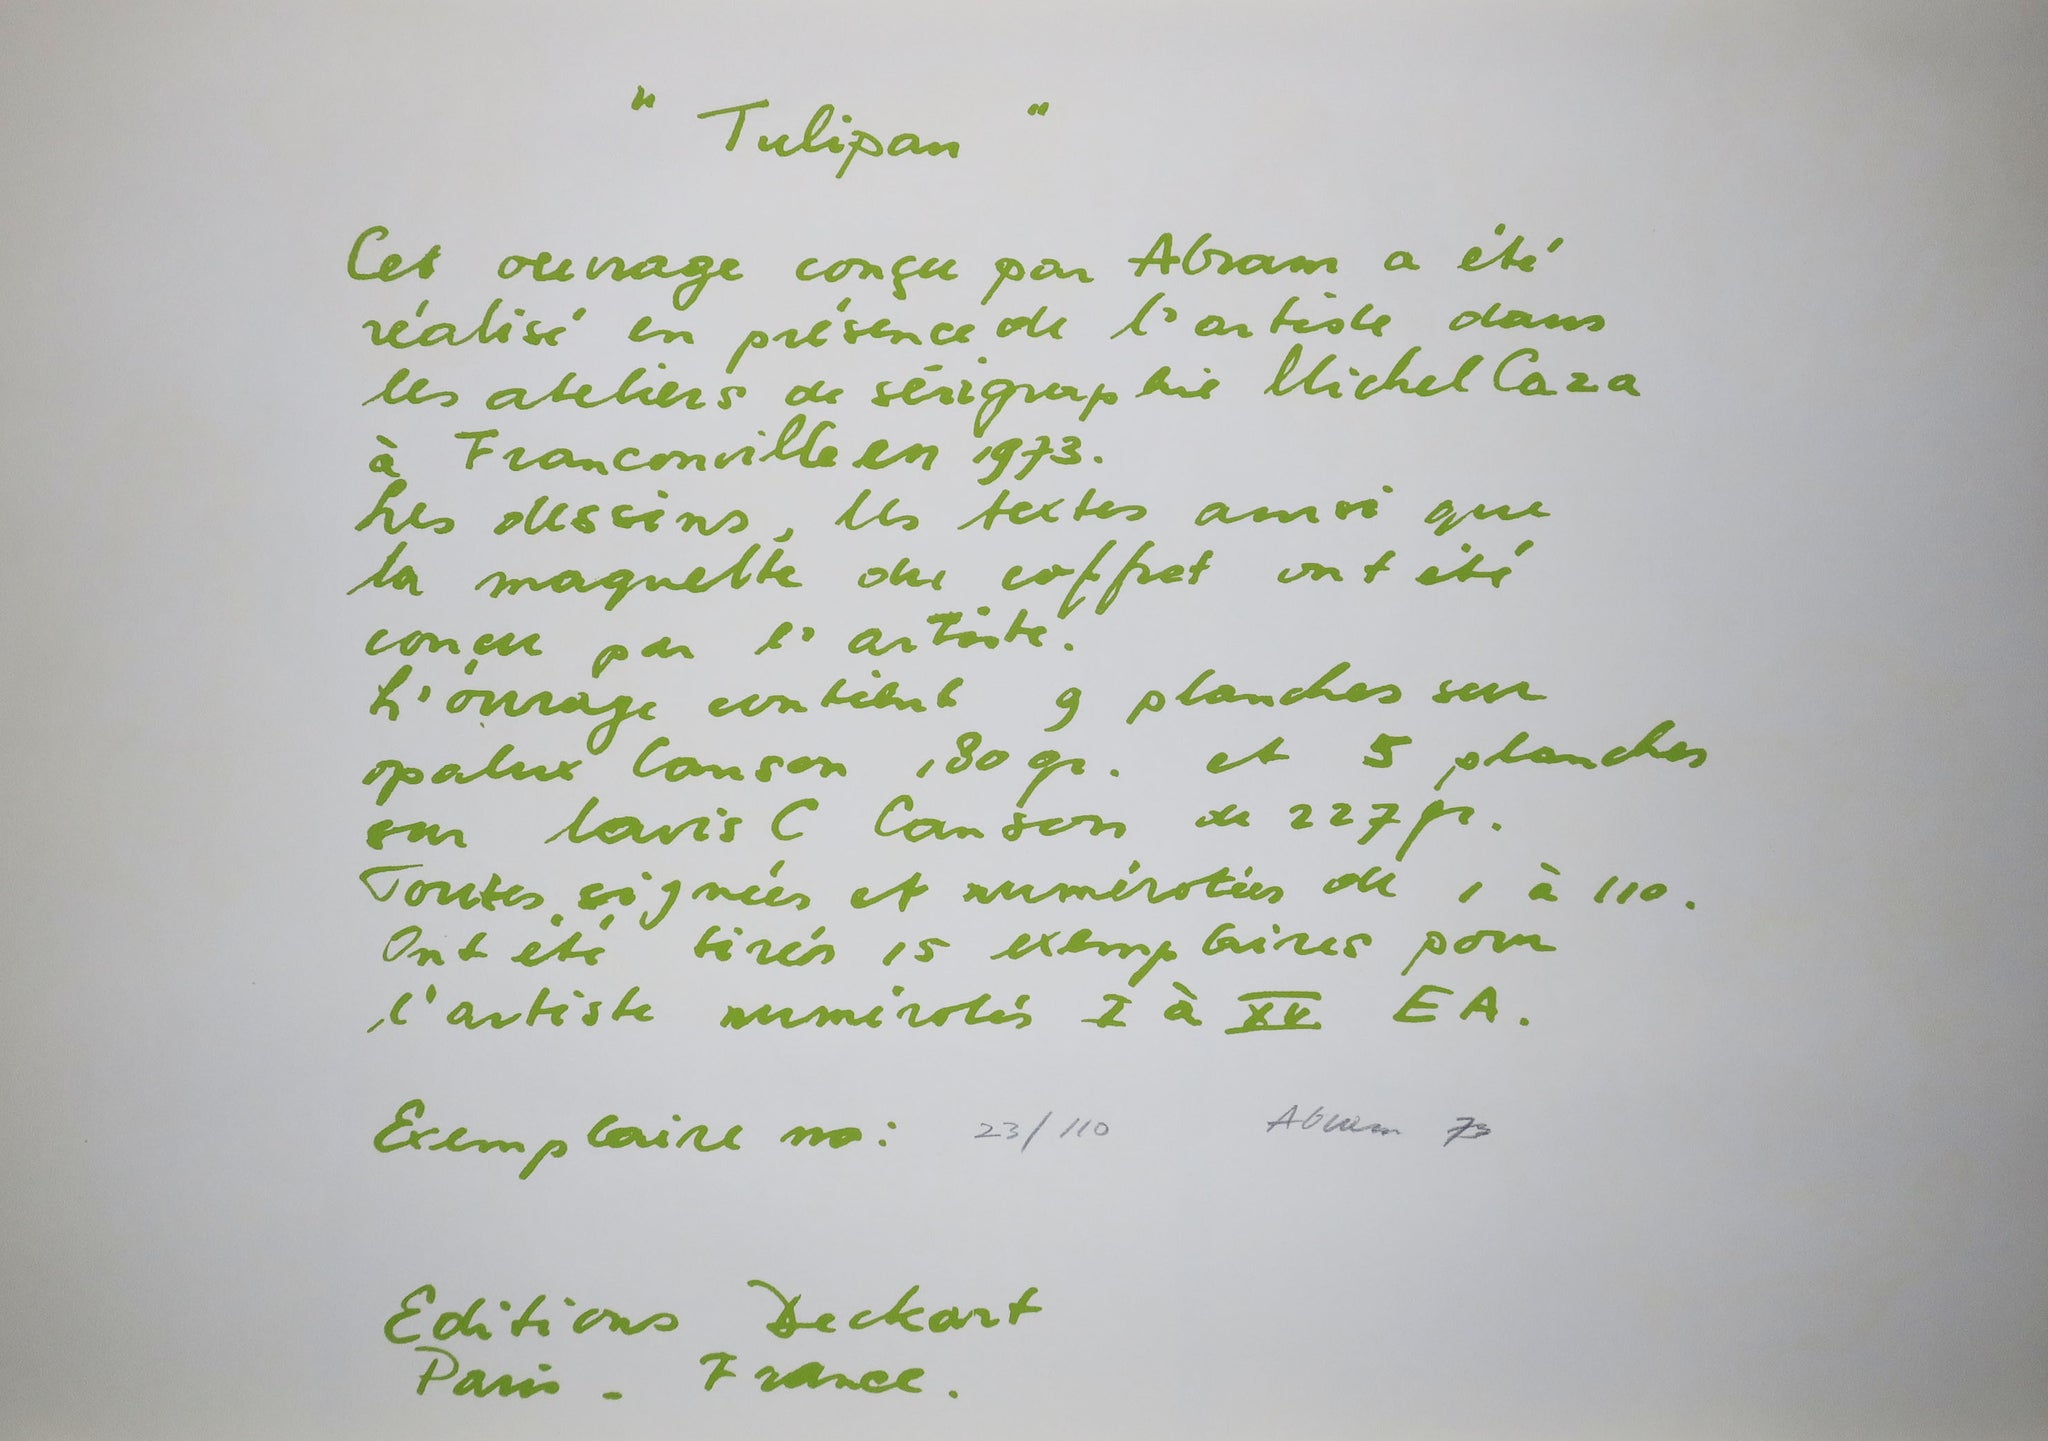 " Tulipan "
Cet ouvrage conçu par Abram a été
réalisé en présence de l'artiste dans
les ateliers de sérigraphie Michel Caza
à Franconville en 1973.
Les dessins, les textes ainsi que
la maquette du coffret ont été
conçu par l'artiste.
L'ouvrage contient 9 planches sur
opalux Canson 180 gr. et 5 planches
sur lavis C Canson de 227 gr.
Toutes signées et numérotées de 1 à 110.
Ont été tirés 15 exemplaires pour
l'artiste numérotés I à XV EA.
Exemplaire no: 23/110 Abram 73
Editions Deckart
Paris - France.